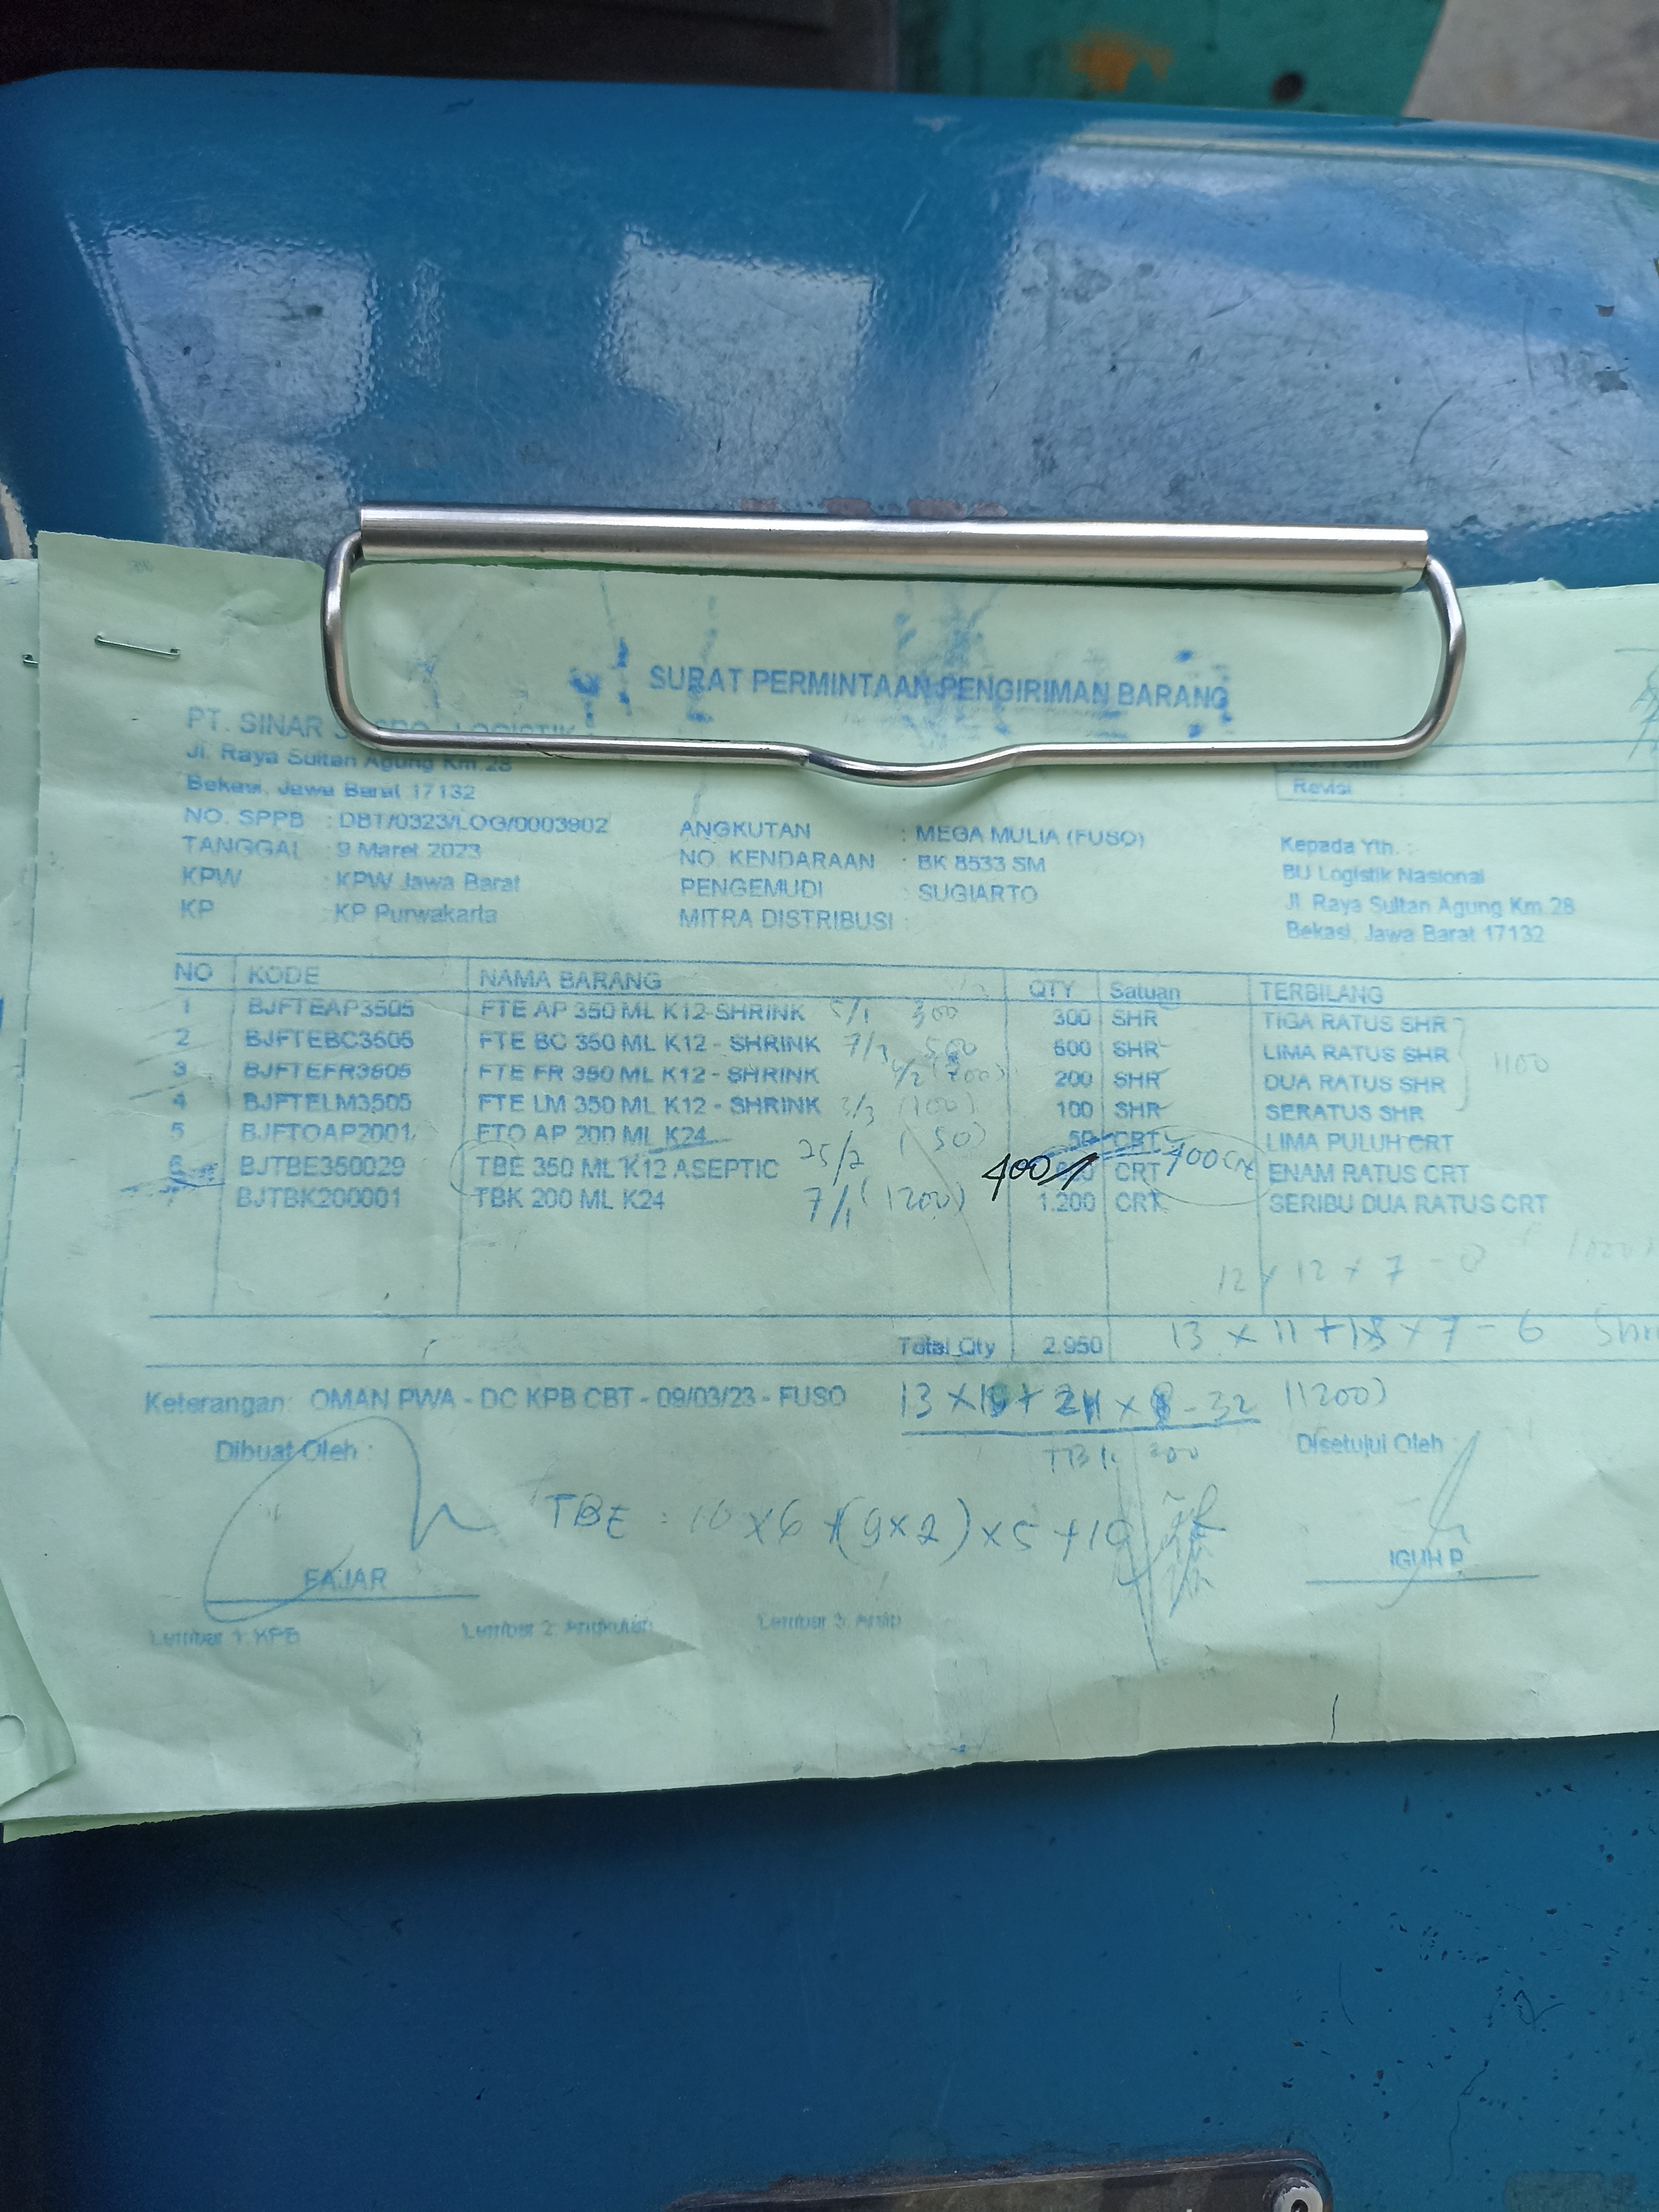 SURAT PERMINTAAN PENGIRIMAN BARANG
PT. SINAR LOGISTIK
Jl. Raya Sultan Agung Km.28
Bekasi, Jawa Barat 17132
Revisi :
NO. SPPB : DBT/0323/LOG/0003902
TANGGAL : 9 Maret 2023
KPW : KPW Jawa Barat
KP : KP Purwakarta
ANGKUTAN : MEGA MULIA (FUSO)
NO. KENDARAAN : BK 8533 SM
PENGEMUDI : SUGIARTO
MITRA DISTRIBUSI :
Kepada Yth. :
BU Logistik Nasional
Jl. Raya Sultan Agung Km.28
Bekasi, Jawa Barat 17132
NO KODE NAMA BARANG QTY Satuan TERBILANG
1 BJFTEAP3505 FTE AP 350 ML K12-SHRINK 5/1 300 300 SHR TIGA RATUS SHR
2 BJFTEBC3505 FTE BC 350 ML K12 - SHRINK 500 500 SHR LIMA RATUS SHR
3 BJFTEFR3505 FTE FR 350 ML K12 - SHRINK (200) 200 SHR DUA RATUS SHR
1100
4 BJFTELM3505 FTE LM 350 ML K12 - SHRINK (100) 100 SHR SERATUS SHR
5 BJFTOAP2001 FTO AP 200 ML K24 (50) 50 CRT LIMA PULUH CRT
6 BJTBE350029 TBE 350 ML K12 ASEPTIC 25/2 400 CRT 400 ENAM RATUS CRT
7 BJTBK200001 TBK 200 ML K24 7/1 (1200) 1.200 CRT SERIBU DUA RATUS CRT
12 x 12 x 7 - 8
Total Qty 2.950 13 x 11 + 13 x 7 - 6
Keterangan: OMAN PWA - DC KPB CBT - 09/03/23 - FUSO
- 32 (1200)
Dibuat Oleh :
Disetujui Oleh
TBE : 10 x 6 x (9x2) x 5 + 10
FAJAR
IGUH P.
Lembar 1: KPB Lembar 2: Angkutan Lembar 3: Arsip